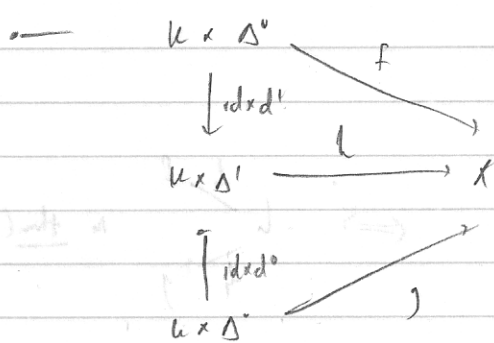 K × Δ⁰
f
id×d¹
h
K × Δ¹ X
id×d⁰
K × Δ⁰ g